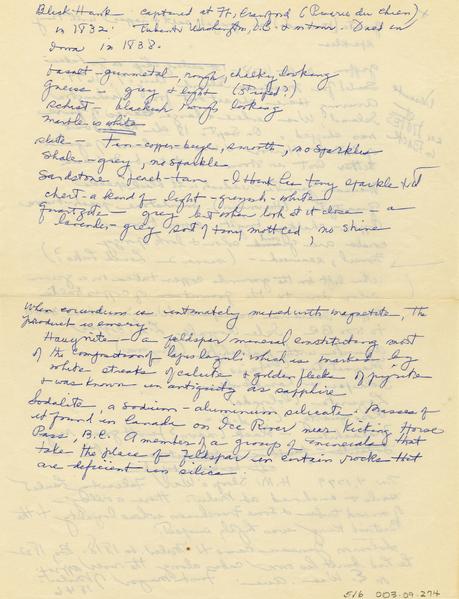 Black Hawk captured at Ft. Crawford (Prairie du Chien)
in 1832. Taken to Washington, D.C. & returned. Died in
Iowa in 1838.
basalt - gunmetal, rough, chalky looking
Gneiss - gray & light (striped?)
schist - blackish rough looking
marble is white
slate - tan-copper-beige, smooth, no sparkles
Shale - grey, no sparkle
Sandstone - peach-tan - I think has tiny sparkle
chert - a blend of light - greyish - white
Quartzite - grey but when look at it close - a
lavender-grey sort of tiny mottled, no shine
When corundum is intimately mixed with magnetite, the
product is emery
Hauynite - a feldspar mineral constituting most
of the composition of lapis lazuli which is marked by
white streaks of calcite & golden flecks of pyrite
& was known in antiquity as sapphire
Sodalite, a sodium-aluminum silicate. Masses of
it found in Canada on Ice River near Kicking Horse
Pass, B.C. A member of a group of minerals that
take the place of feldspar in certain rocks that
are deficient in silica.
5/6 003.09.274